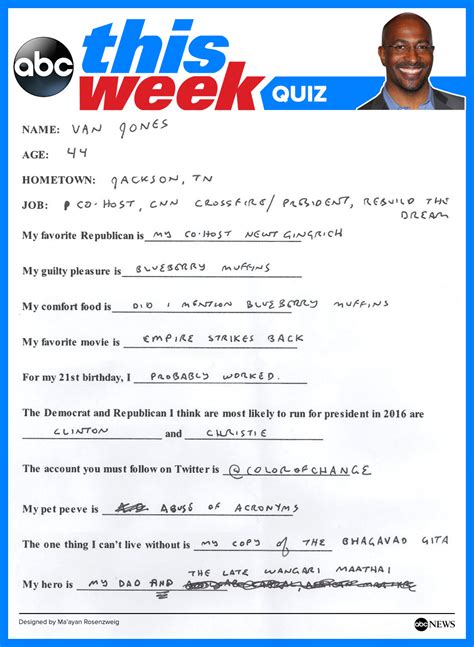 abc this week QUIZ
NAME: VAN JONES
AGE: 44
HOMETOWN: JACKSON, TN
JOB: CO-HOST, CNN CROSSFIRE/ PRESIDENT, REBUILD THE DREAM
My favorite Republican is MY CO-HOST NEWT GINGRICH
My guilty pleasure is BLUEBERRY MUFFINS
My comfort food is DID I MENTION BLUEBERRY MUFFINS
My favorite movie is EMPIRE STRIKES BACK
For my 21st birthday, I PROBABLY WORKED.
The Democrat and Republican I think are most likely to run for president in 2016 are
CLINTON and CHRISTIE
The account you must follow on Twitter is @COLOROFCHANGE
My pet peeve is ABUSE OF ACRONYMS
The one thing I can't live without is MY COPY of THE BHAGAVAD GITA
THE LATE WANGARI MAATHAI
My hero is MY DAD AND
Designed by Ma'ayan Rosenzweig
abc NEWS